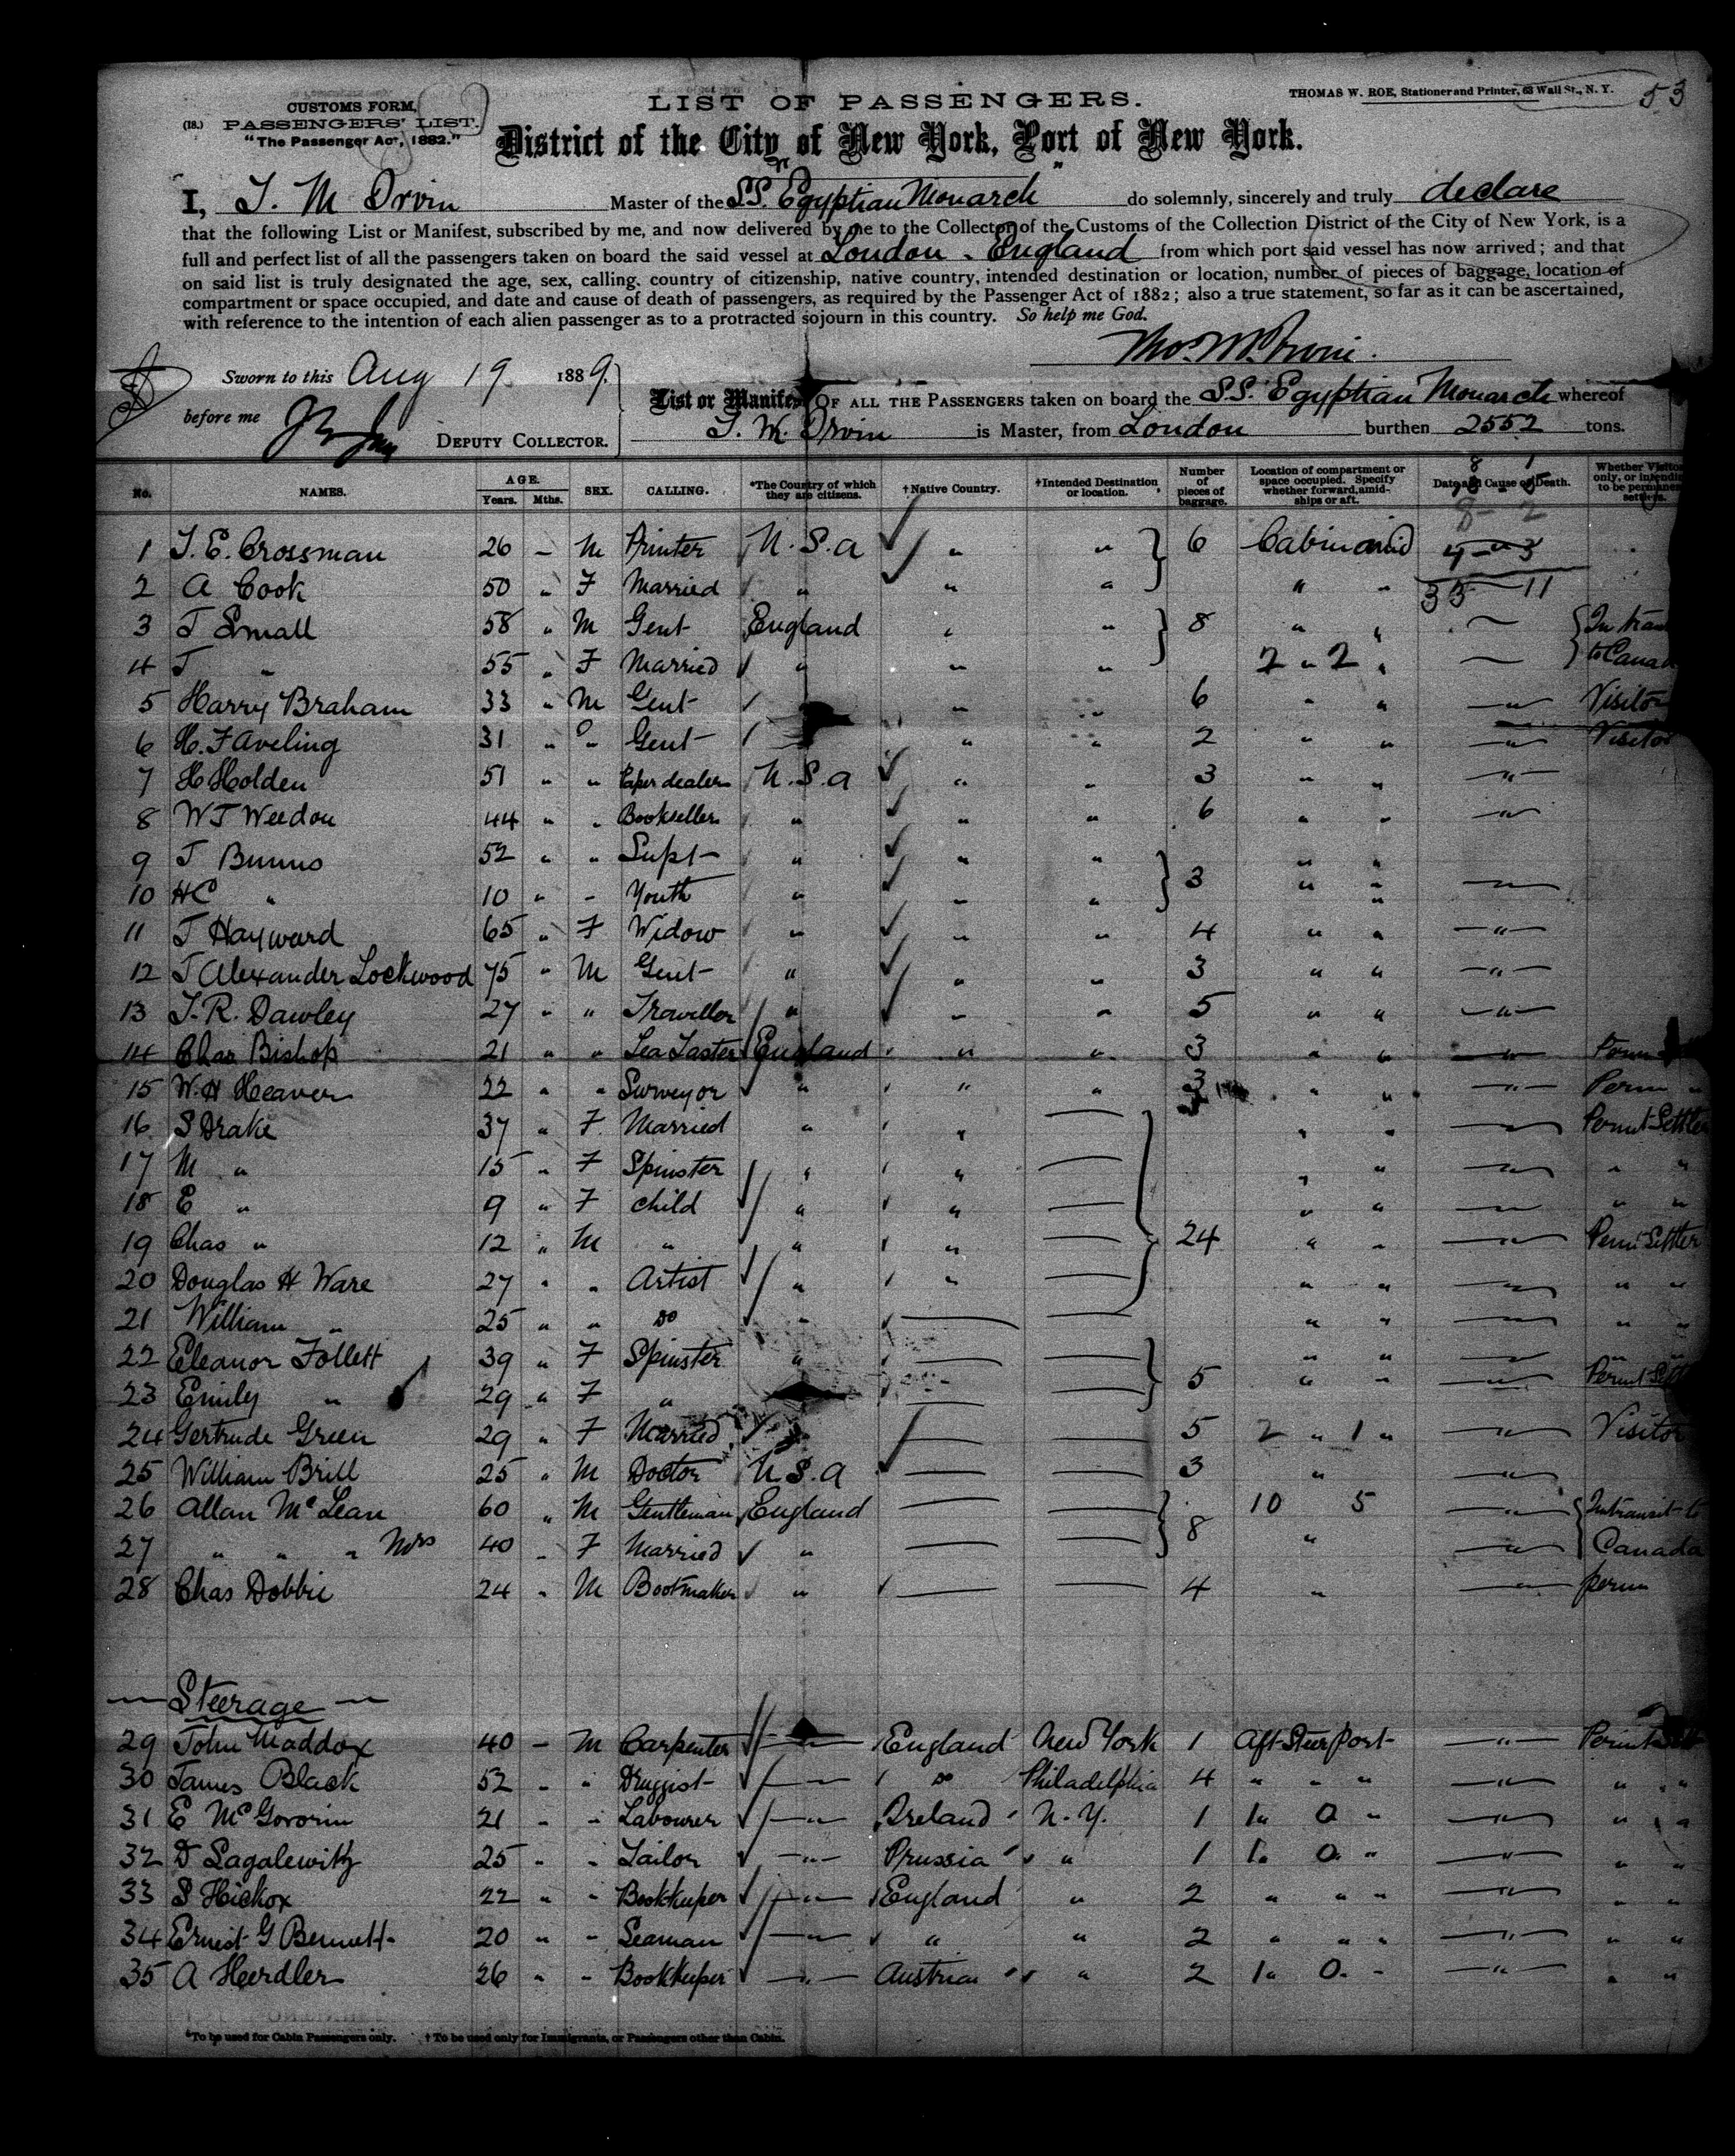 53
CUSTOMS FORM,
(18.) PASSENGERS' LIST.
"The Passenger Act, 1882."
LIST OF PASSENGERS.
THOMAS W. ROE, Stationer and Printer, 63 Wall St., N. Y.
District of the City of New York, Port of New York.
I, T. M Irvin Master of the S.S. Egyptian Monarch do solemnly, sincerely and truly declare
that the following List or Manifest, subscribed by me, and now delivered by me to the Collector of the Customs of the Collection District of the City of New York, is a
full and perfect list of all the passengers taken on board the said vessel at London - England from which port said vessel has now arrived; and that
on said list is truly designated the age, sex, calling, country of citizenship, native country, intended destination or location, number of pieces of baggage, location of
compartment or space occupied, and date and cause of death of passengers, as required by the Passenger Act of 1882; also a true statement, so far as it can be ascertained,
with reference to the intention of each alien passenger as to a protracted sojourn in this country. So help me God.
Sworn to this Aug 19 1889.
before me DEPUTY COLLECTOR.
List or Manifest OF ALL THE PASSENGERS taken on board the S.S. Egyptian Monarch whereof
T. M. Irvin is Master, from London burthen 2552 tons.
No. NAMES. AGE. Years. Mths. SEX. CALLING. *The Country of which they are citizens. †Native Country. †Intended Destination or location. Number of pieces of baggage. Location of compartment or space occupied. Specify whether forward, amidships or aft. Date and Cause of Death. Whether Visitor only, or intending to be permanent settlers.
1 T. E. Crossman 26 - M Printer U.S.a " " 6 Cabin mid
2 A Cook 50 " F Married " " " " "
33 - 11
3 T Small 58 " M Gent England " " 8 " " In tran
4 T " 55 " F Married " " " 2 " 2 " to Canad
5 Harry Braham 33 " M Gent " " 6 " " Visitor
6 H. F Aveling 31 " " Gent " " 2 " " Visitor
7 H Holden 51 " " Paper dealer U.S.a " " 3 " "
8 W T Weedon 44 " " Bookseller " " " 6 " "
9 J Bunns 52 " " Supt " " " " "
10 HC " 10 " - Youth " " " 3 " "
11 J Hayward 65 " F Widow " " " 4 " " "
12 J Alexander Lockwood 75 " M Gent " " " 3 " " "
13 T. R. Dawley 27 " " Traveller " " " 5 " " "
14 Chas Bishop 21 " " Tea Taster England " " 3 " " " Perm
15 W. H Heaver 22 " " Surveyor " " " 3 " " " Perm "
16 S Drake 37 " F Married " " " " " Permt Settler
17 M " 15 " F Spinster " " " " " " "
18 E " 9 " F child " " " " " " "
19 Chas " 12 " M " " " 24 " " " Perm Settler
20 Douglas H Ware 27 " " Artist " " " " " " "
21 William " 25 " " do " " " " " "
22 Eleanor Follett 39 " F Spinster " " " " "
23 Emily " 29 " F " 5 " " " Permt Sett
24 Gertrude Green 29 " F Married 5 2 " 1 " " Visitor
25 William Brill 25 " M Doctor U.S.a 3 " "
26 Allan McLean 60 " M Gentleman England 10 5 " Intransit to
27 " " " Mrs 40 " F Married " 8 " " Canada
28 Chas Dobbie 24 " M Bootmaker " 4 " " perm
Steerage
29 John Maddox 40 - M Carpenter " England New York 1 Aft Steer Port " Permt Sett
30 James Black 52 - " Druggist " do Philadelphia 4 " " " " " "
31 E McGovorin 21 - " Labourer " Ireland N.Y. 1 1" 0 " " " "
32 D Sagalewitz 25 " " Tailor " Prussia " 1 1" 0 " " " "
33 S Hickox 22 " " Bookkeeper " England " 2 " " " " " "
34 Ernest G Bennett 20 " " Seaman " " " 2 " " " " " "
35 A Herdler 26 " " Bookkeeper " Austria " 2 1" 0 " " " "
*To be used for Cabin Passengers only. †To be used only for Immigrants, or Passengers other than Cabin.